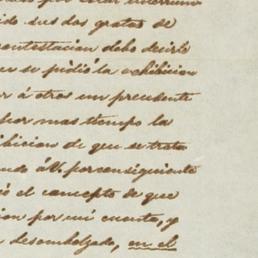 ido sus dos gratas de
contestacion debo decirle
se pidió la exhibicion
r á otros un precedente
por mas tiempo la
ibicion de que se trata
ando á V. por consiguiente
ó el concepto de que
ion por mi cuenta, y
desembolzado, en el